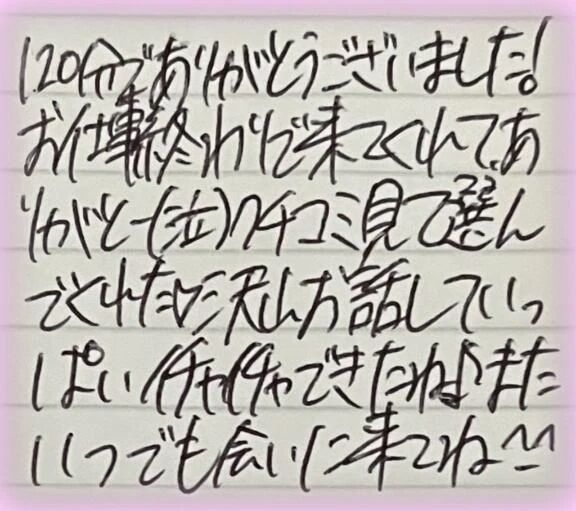 120分でありがとうございました!
お仕事終わりで来てくれてあ
りがとー(泣)クチコミ見て選ん
でくれた♡沢山お話していっ
ぱいイチャイチャできたね♪また
いつでも会いに来てね^^